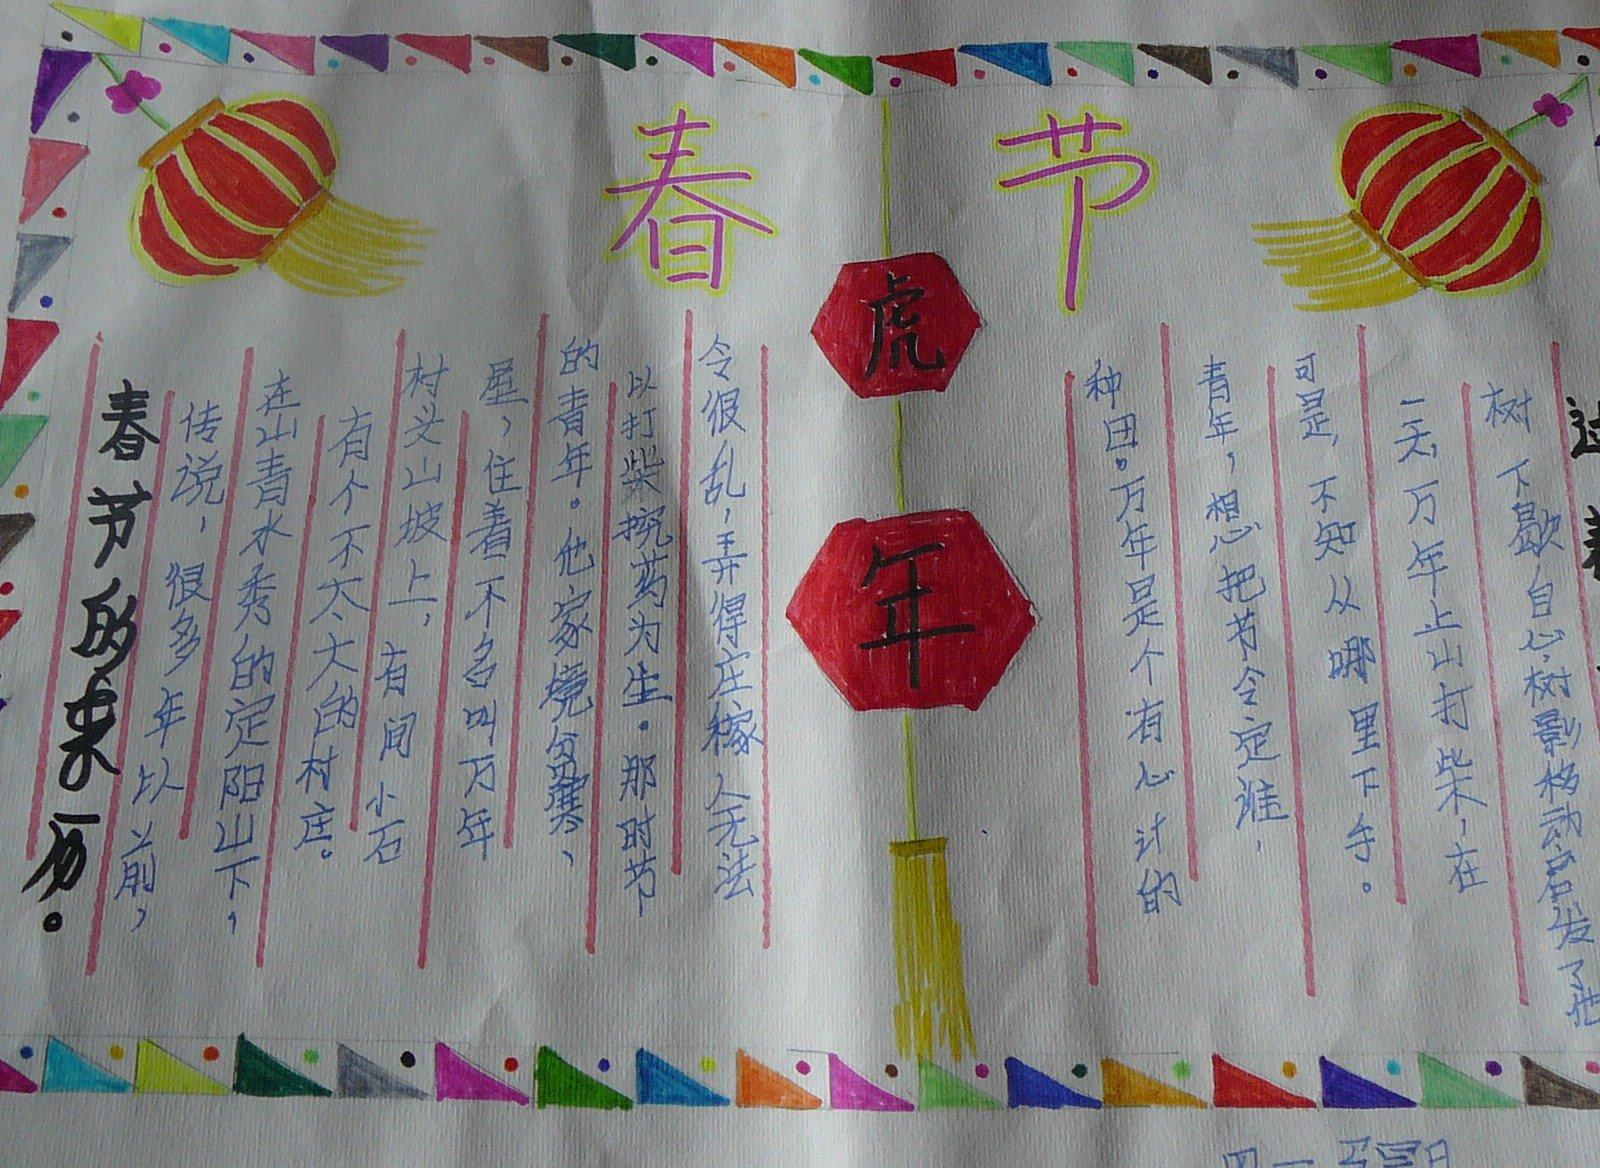 春节
虎年
春节的来历。
传说，很多年以前，
在山青水秀的定阳山下，
有个不太大的村庄。
村头山坡上，有间小石
屋，住着不名叫万年
的青年。他家境贫寒、
以打柴挖药为生。那时节
令很乱，弄得庄稼人无法
种田。万年是个有心计的
青年，想把节令定准，
可是，不知从哪里下手。
一天，万年上山打柴，在
树下歇，自心，树影移动启发了他